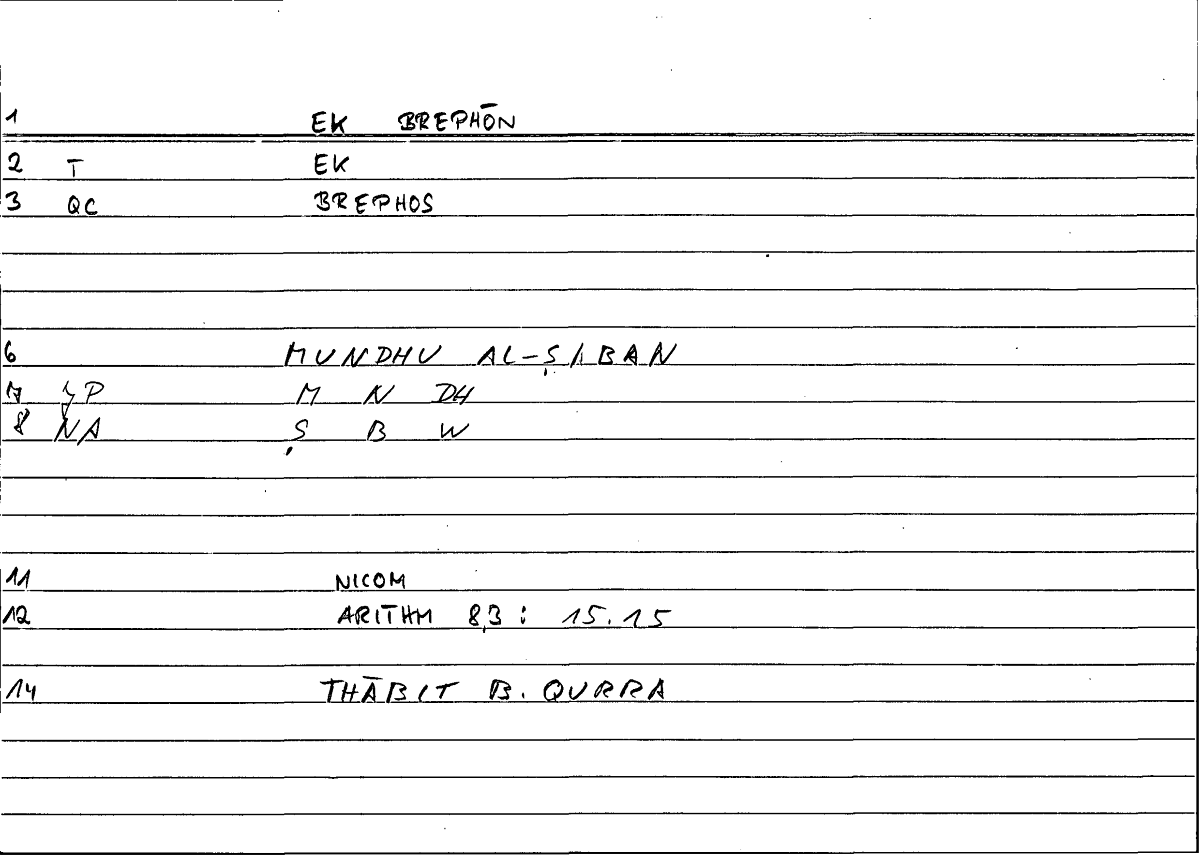 1 EK BREPHŌN
2 T EK
3 QC BREPHOS
6 MUNDHU AL-ṢIBAN
7 P M N DH
8 NA Ṣ B W
11 NICOM
12 ARITHM 8,3 : 15.15
14 THĀBIT B. QURRA